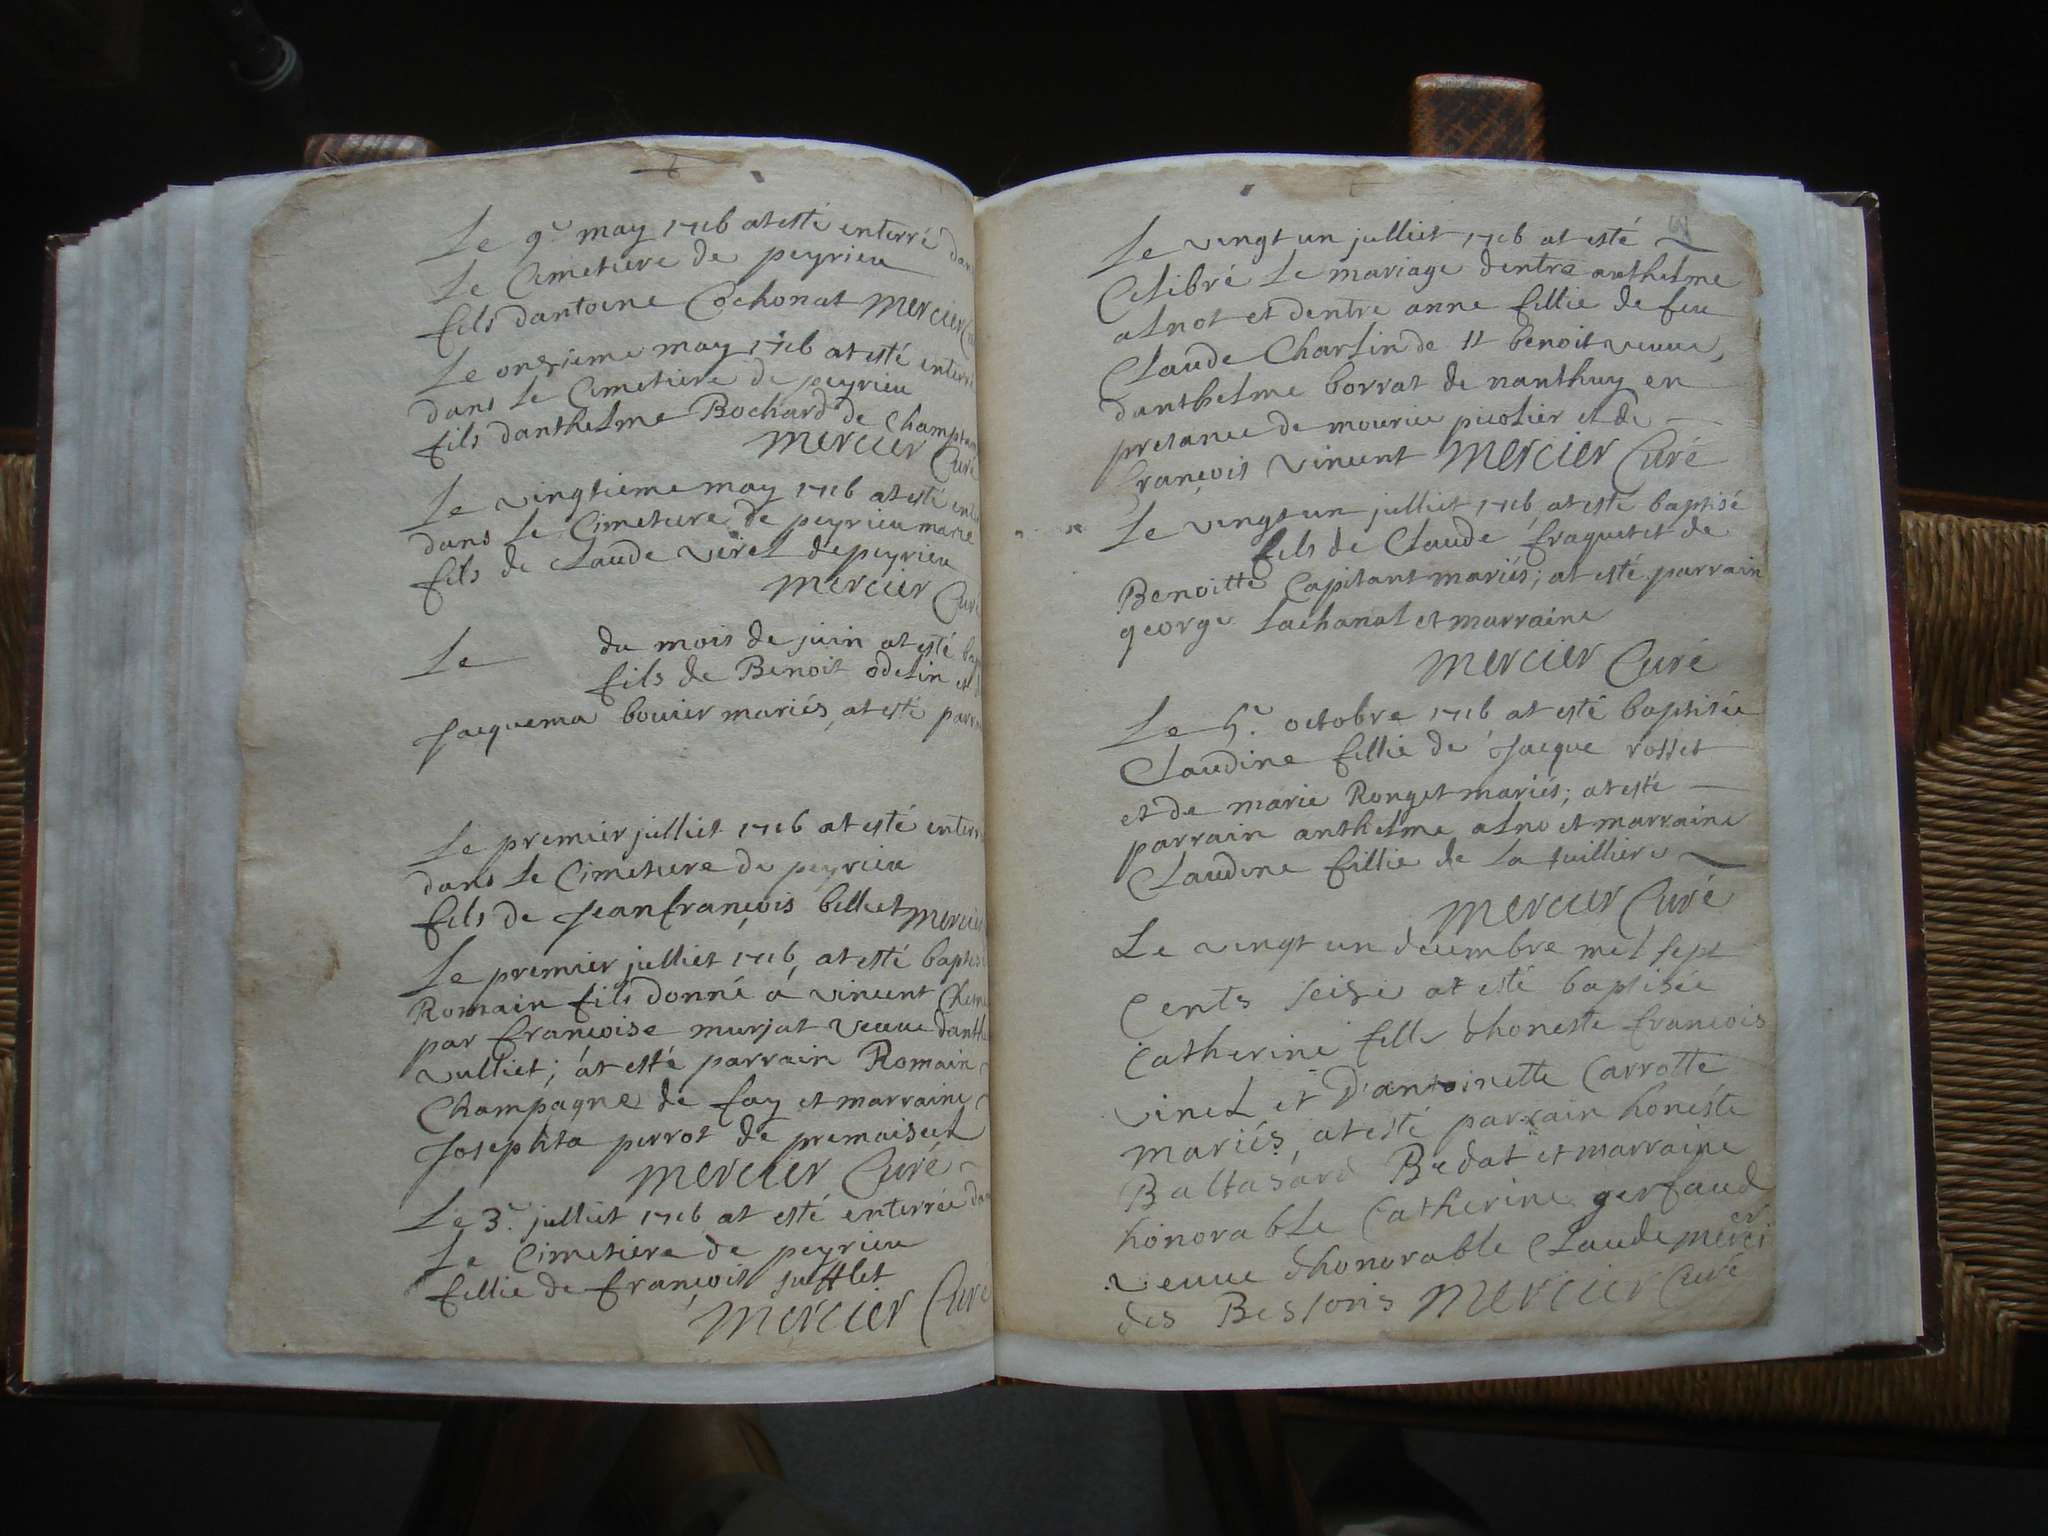 Le 9.e may 1716 at esté enterré dan
Le Cimetiere de peyrieu
fils dantoine Cochonat Mercier C
Le onzieme may 1716 at esté enterr
dans Le Cimetiere de peyrieu
fils danthelme Bochard de Champta
Mercier Curé
Le vingtieme may 1716 at esté ent
dans Le Cimetiere de peyrieu marie
fils de Claude Viret de peyrieu
Mercier Curé
Le du mois de juin at esté bap
fils de Benoit odelin et d
Jacquema bouvier mariés, at esté parra
Le premier julliet 1716 at esté enterr
dans Le Cimetiere de peyrieu
fils de Jeanfrançois billiet Mercier
Le premier julliet 1716, at esté baptisé
Romain fils donné a vincent
par françoise murjat veuue danth
vulliet; at esté parrain Romain
Champagne de fay et marraine
Josephta perrot de premaisel
Mercier Curé
Le 3.e julliet 1716 at esté enterrée dan
Le Cimetiere de peyrieu
fillie de françois sufflet
Mercier Curé
Le vingt un julliet 1716 at esté
Celibré Le mariage dentre anthelme
alnot et dentre anne fillie de feu
Claude Charlin de st benoit veuue,
danthelme borrat de nanthuy en
presance de mourice picolier et de
françois vincent Mercier Curé
Le vingt un julliet 1716, at esté baptisé
fils de Claude fraquet et de
Benoitte Capitant mariés; at esté parrain
george Lachanal et marraine
Mercier Curé
Le 5.e octobre 1716 at esté baptisée
Claudine fillie de Jacque rosset
et de marie Ronget mariés; at esté
parrain anthelme alno et marraine
Claudine fillie de La tuilliere
Mercier Curé
Le vingt un decembre mel sept
Cents seise at esté baptisée
Catherine fille dhoneste françois
vinet et D'antoinette Carrotte
mariés, at esté parrain honeste
Baltasard Bedat et marraine
honorable Catherine gerfaud
veuue dhonorable Claude Mercier
des Bessons Mercier Curé